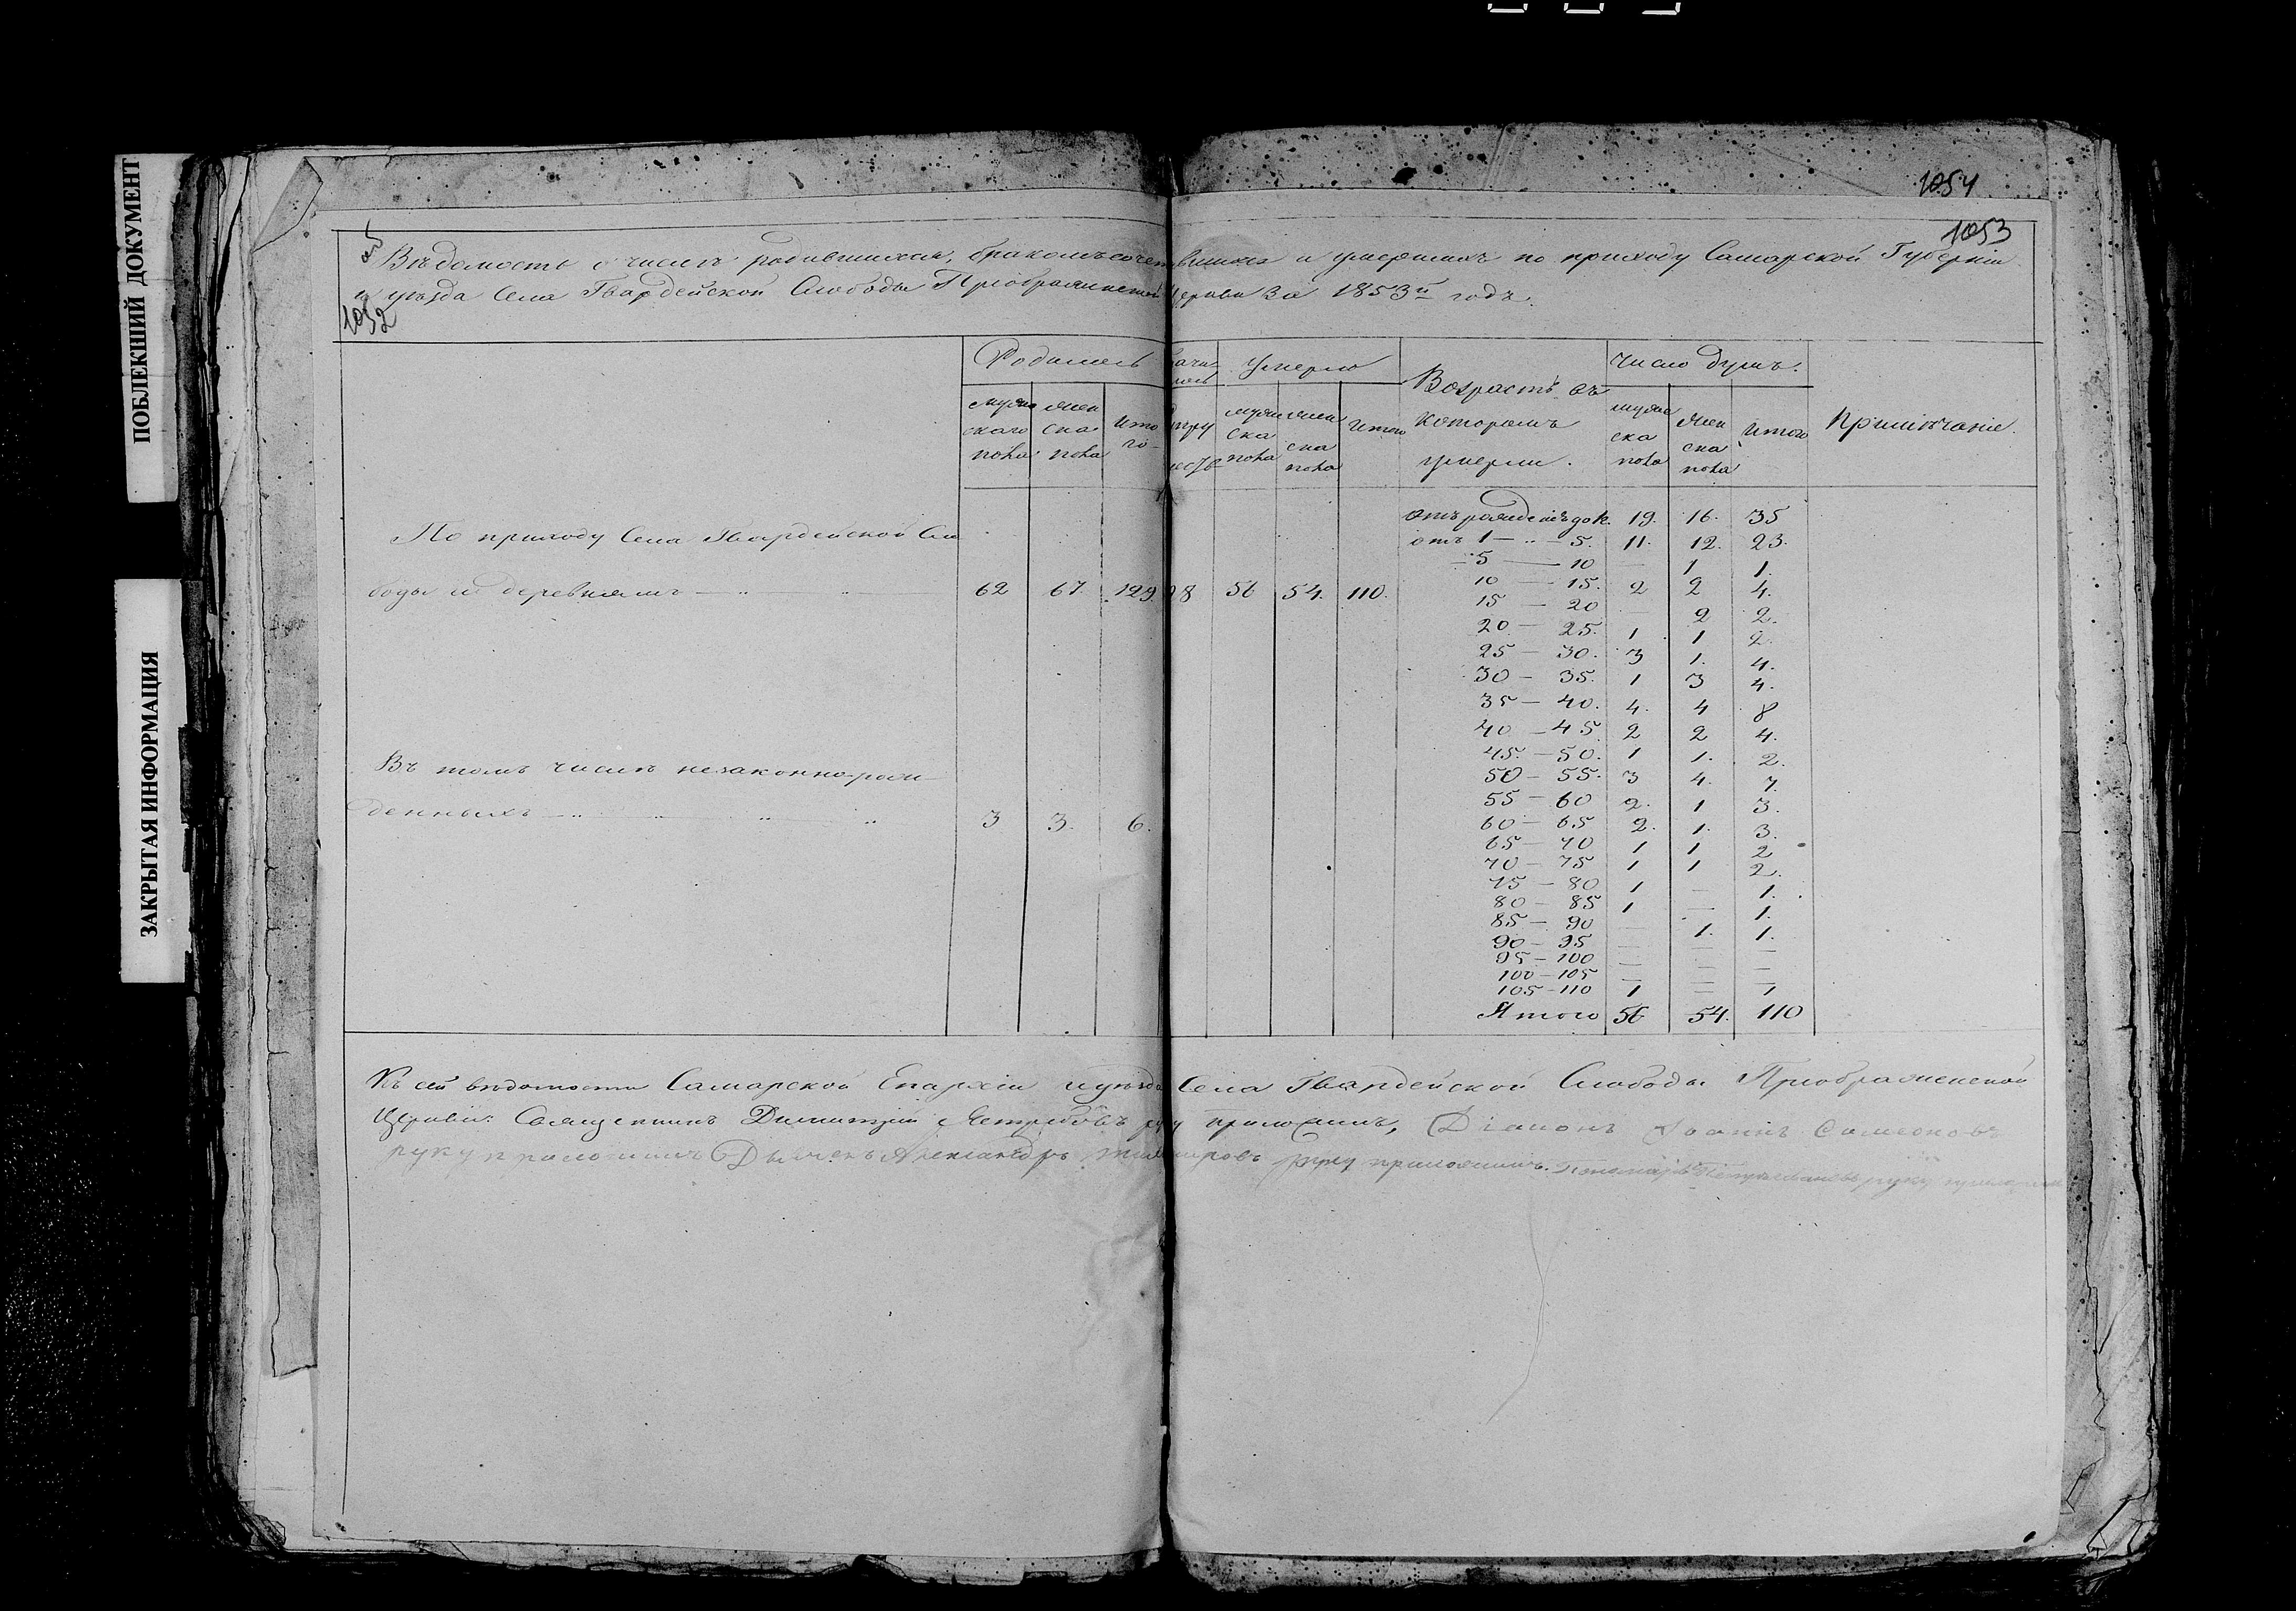 ПОБЛЕКШИЙ ДОКУМЕНТ
ЗАКРЫТАЯ ИНФОРМАЦИЯ
1054
1053
Вѣдомость о числѣ родившихся, бракомъ сочетавшихся и умершихъ по приходу Самарской Губерніи
и уѣзда Села Гвардейской Слободы Преображенской Церкви За 1853й годъ.
1052
Родилось
Умерло
Возрастъ въ которомъ умерли.
Число душъ.
Примѣчаніе.
мужскаго пола
женска пола
Итого
мужска пола
женска пола
Итого
мужска пола
женска пола
Итого
По приходу Села Гвардейской Сло
боды съ деревнями 62 67. 129 8 56 54. 110.
Въ томъ числѣ незаконнорож
денныхъ 3 3. 6.
отъ рожден до 19. 16. 35
отъ 1 — 5. 11. 12. 23.
5 — 10 — 1 1.
10 — 15. 2 2 4.
15 — 20 2 2.
20 — 25. 1 1 2.
25 — 30. 3 1. 4.
30 — 35. 1 3 4.
35 — 40. 4. 4 8
40 — 45 2 2 4.
45. — 50. 1 1. 2.
50 — 55. 3 4. 7
55 — 60 2. 1 3.
60 — 65 2. 1. 3.
65 — 70 1 1 2
70 — 75 1 1 2.
75 — 80 1 — 1.
80 — 85 1 — 1.
85 — 90 — 1. 1.
90 — 95 — — —
95 — 100 — — —
100 — 105 — — —
105 — 110 1 — 1
Итого 56 54. 110
Къ сей вѣдомости Самарской Епархіи и уѣзда Села Гвардейской Слободы Преображенской
Церкви: Священникъ Димитрій Ястребовъ руку приложилъ, Діаконъ Іоаннъ Симеоновъ
руку приложилъ Дьячекъ Александръ руку приложилъ. Пономарь руку